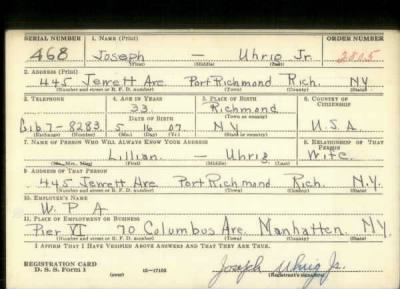 SERIAL NUMBER 1. NAME (Print) ORDER NUMBER
468 Joseph — Uhrig Jr. 2805
(First) (Middle) (Last)
2. ADDRESS (Print)
445 Jewett Ave Port Richmond Rich. NY
(Number and street or R. F. D. number) (Town) (County) (State)
3. TELEPHONE 4. AGE IN YEARS 5. PLACE OF BIRTH 6. COUNTRY OF CITIZENSHIP
33 Richmond
DATE OF BIRTH (Town or county)
Gib 7-8283 5 16 07 NY U.S.A.
(Exchange) (Number) (Mo.) (Day) (Yr.) (State or country)
7. NAME OF PERSON WHO WILL ALWAYS KNOW YOUR ADDRESS 8. RELATIONSHIP OF THAT PERSON
Lillian — Uhrig Wife
(Mr., Mrs., Miss) (First) (Middle) (Last)
9. ADDRESS OF THAT PERSON
445 Jewett Ave Port Richmond Rich. N.Y.
(Number and street or R. F. D. number) (Town) (County) (State)
10. EMPLOYER'S NAME
W. P. A
11. PLACE OF EMPLOYMENT OR BUSINESS
Pier VI 70 Columbus Ave. Manhatten. NY.
(Number and street or R. F. D. number) (Town) (County) (State)
I AFFIRM THAT I HAVE VERIFIED ABOVE ANSWERS AND THAT THEY ARE TRUE.
REGISTRATION CARD
D. S. S. Form 1 (over) 16—17105 Joseph Uhrig Jr.
(Registrant's signature)